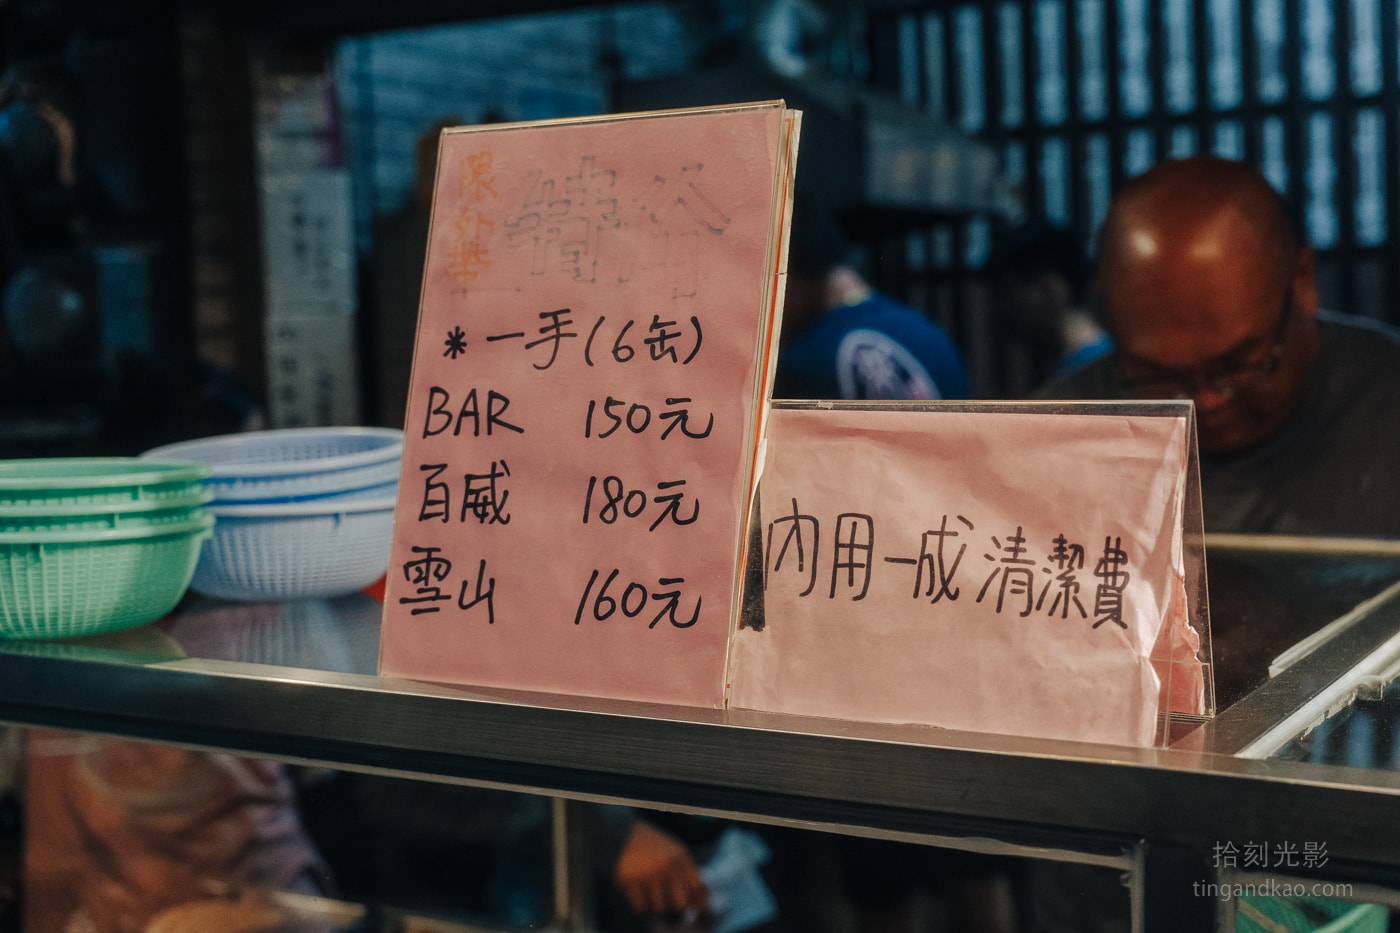 限外帶
*一手(6缶)
BAR 150元
百威 180元
雪山 160元
內用一成清潔費
拾刻光影
tingandkao.com